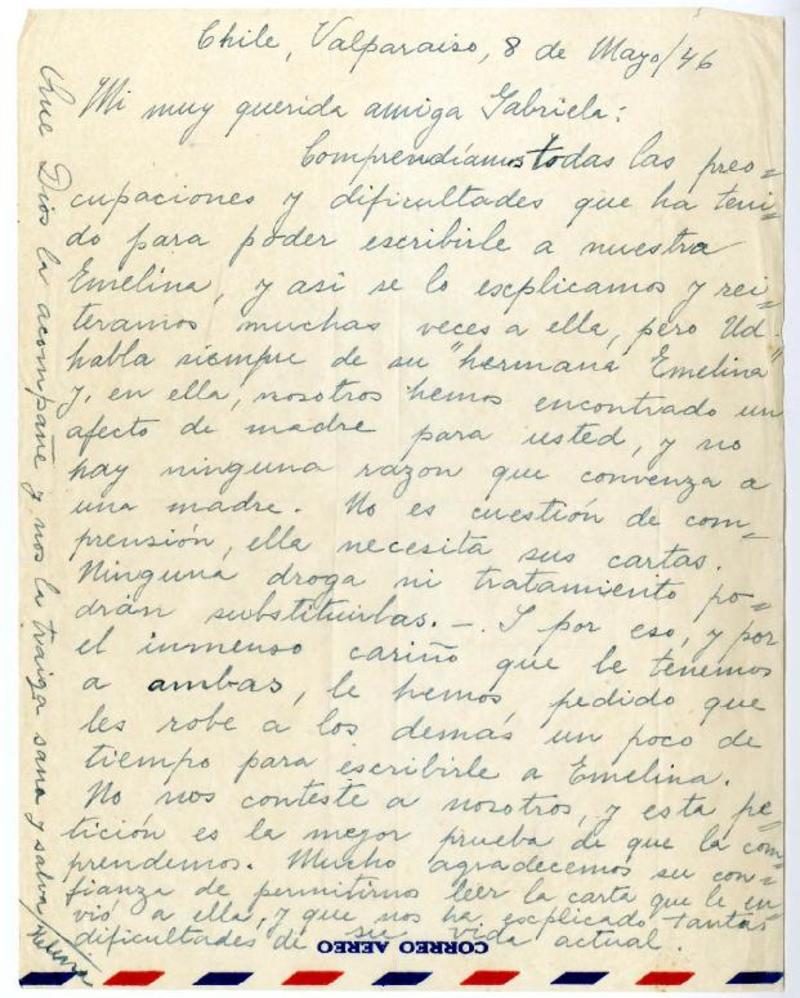 Chile, Valparaiso, 8 de Mayo/46
Mi muy querida amiga Gabriela:
Comprendíamos todas las preo=
cupaciones y dificultades que ha teni=
do para poder escribirle a nuestra
Emelina, y asi se lo esplicamos y rei=
teramos muchas veces a ella, pero Ud.
habla siempre de su "hermana Emelina"
y, en ella, nosotros hemos encontrado un
afecto de madre para usted, y no
hay ninguna razon que convenza a
una madre. No es cuestión de com_
prensión, ella necesita sus cartas.
Ninguna droga ni tratamiento po=
drán substituirlas. _. I por eso, y por
el inmenso cariño que le tenemos
a ambas, le hemos pedido que
les robe a los demás un poco de
tiempo para escribirle a Emelina.
No nos conteste a nosotros, y esta pe_
tición es la mejor prueba de que la com=
prendemos. Mucho agradecemos su con=
fianza de permitirnos leer la carta que le en
vió a ella, y que nos ha esplicado tantas
dificultades de su vida actual.
CORREO AEREO
Que Dios la acompañe y nos la traiga sana y salva/